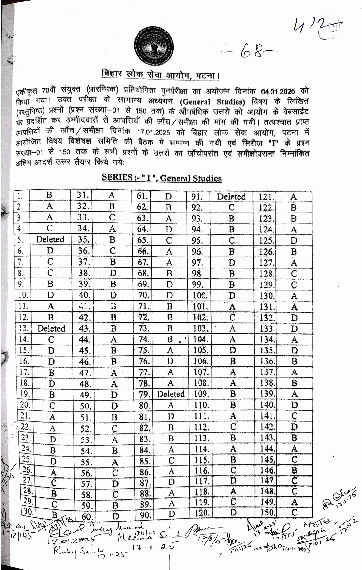 -68-
बिहार लोक सेवा आयोग, पटना।
एकीकृत 70वीं संयुक्त (प्रारम्भिक) प्रतियोगिता पुनर्परीक्षा का आयोजन दिनांक 04.01.2025 को
किया गया। उक्त परीक्षा के सामान्य अध्ययन (General Studies) विषय के लिखित
(वस्तुनिष्ठ) प्रश्नों (प्रश्न संख्या-01 से 150 तक) के औपबंधिक उत्तरों को आयोग के वेबसाईट
पर प्रदर्शित कर उम्मीदवारों से आपत्तियों की जाँच/समीक्षा की मांग की गयी। तत्पश्चात प्राप्त
आपत्तियों की जाँच/समीक्षा दिनांक 17.01.2025 को बिहार लोक सेवा आयोग, पटना में
आयोजित विषय विशेषज्ञ समिति की बैठक में सम्पन्न की गयी एवं सिरीज "I" के प्रश्न
संख्या-01 से 150 तक के सभी प्रश्नों के उत्तरों का जाँचोपरांत एवं समीक्षोपरान्त निम्नांकित
अंतिम आदर्श उत्तर तैयार किये गये:
SERIES :- "I", General Studies
1. B 31. A 61. D 91. Deleted 121. A
2. A 32. B 62. B 92. C 122. B
3. A 33. C 63. A 93. B 123. B
4. C 34. A 64. D 94. B 124. A
5. Deleted 35. B 65. C 95. C 125. D
6. D 36. C 66. A 96. B 126. B
7. C 37. B 67. A 97. D 127. A
8. C 38. D 68. B 98. B 128. C
9. B 39. B 69. D 99. B 129. C
10. D 40. D 70. D 100. D 130. A
11. A 41. 71. B 101. A 131. A
12. B 42. B 72. B 102. C 132. D
13. Deleted 43. B 73. B 103. A 133. D
14. C 44. A 74. B 104. A 134. A
15. D 45. B 75. A 105. D 135. D
16. D 46. B 76. D 106. B 136. B
17. B 47. A 77. A 107. A 137. A
18. D 48. A 78. A 108. A 138. B
19. B 49. D 79. Deleted 109. B 139. A
20. C 50. D 80. A 110. B 140. D
21. A 51. B 81. D 111. A 141. C
22. A 52. C 82. B 112. C 142. D
23. D 53. A 83. B 113. B 143. B
24. B 54. B 84. A 114. A 144. A
25. D 55. A 85. C 115. B 145. C
26. A 56. C 86. A 116. C 146. B
27. C 57. D 87. D 117. D 147. C
28. B 58. C 88. A 118. A 148. C
29. C 59. B 89. A 119. C 149. A
30. B 60. D 90. D 120. D 150. C